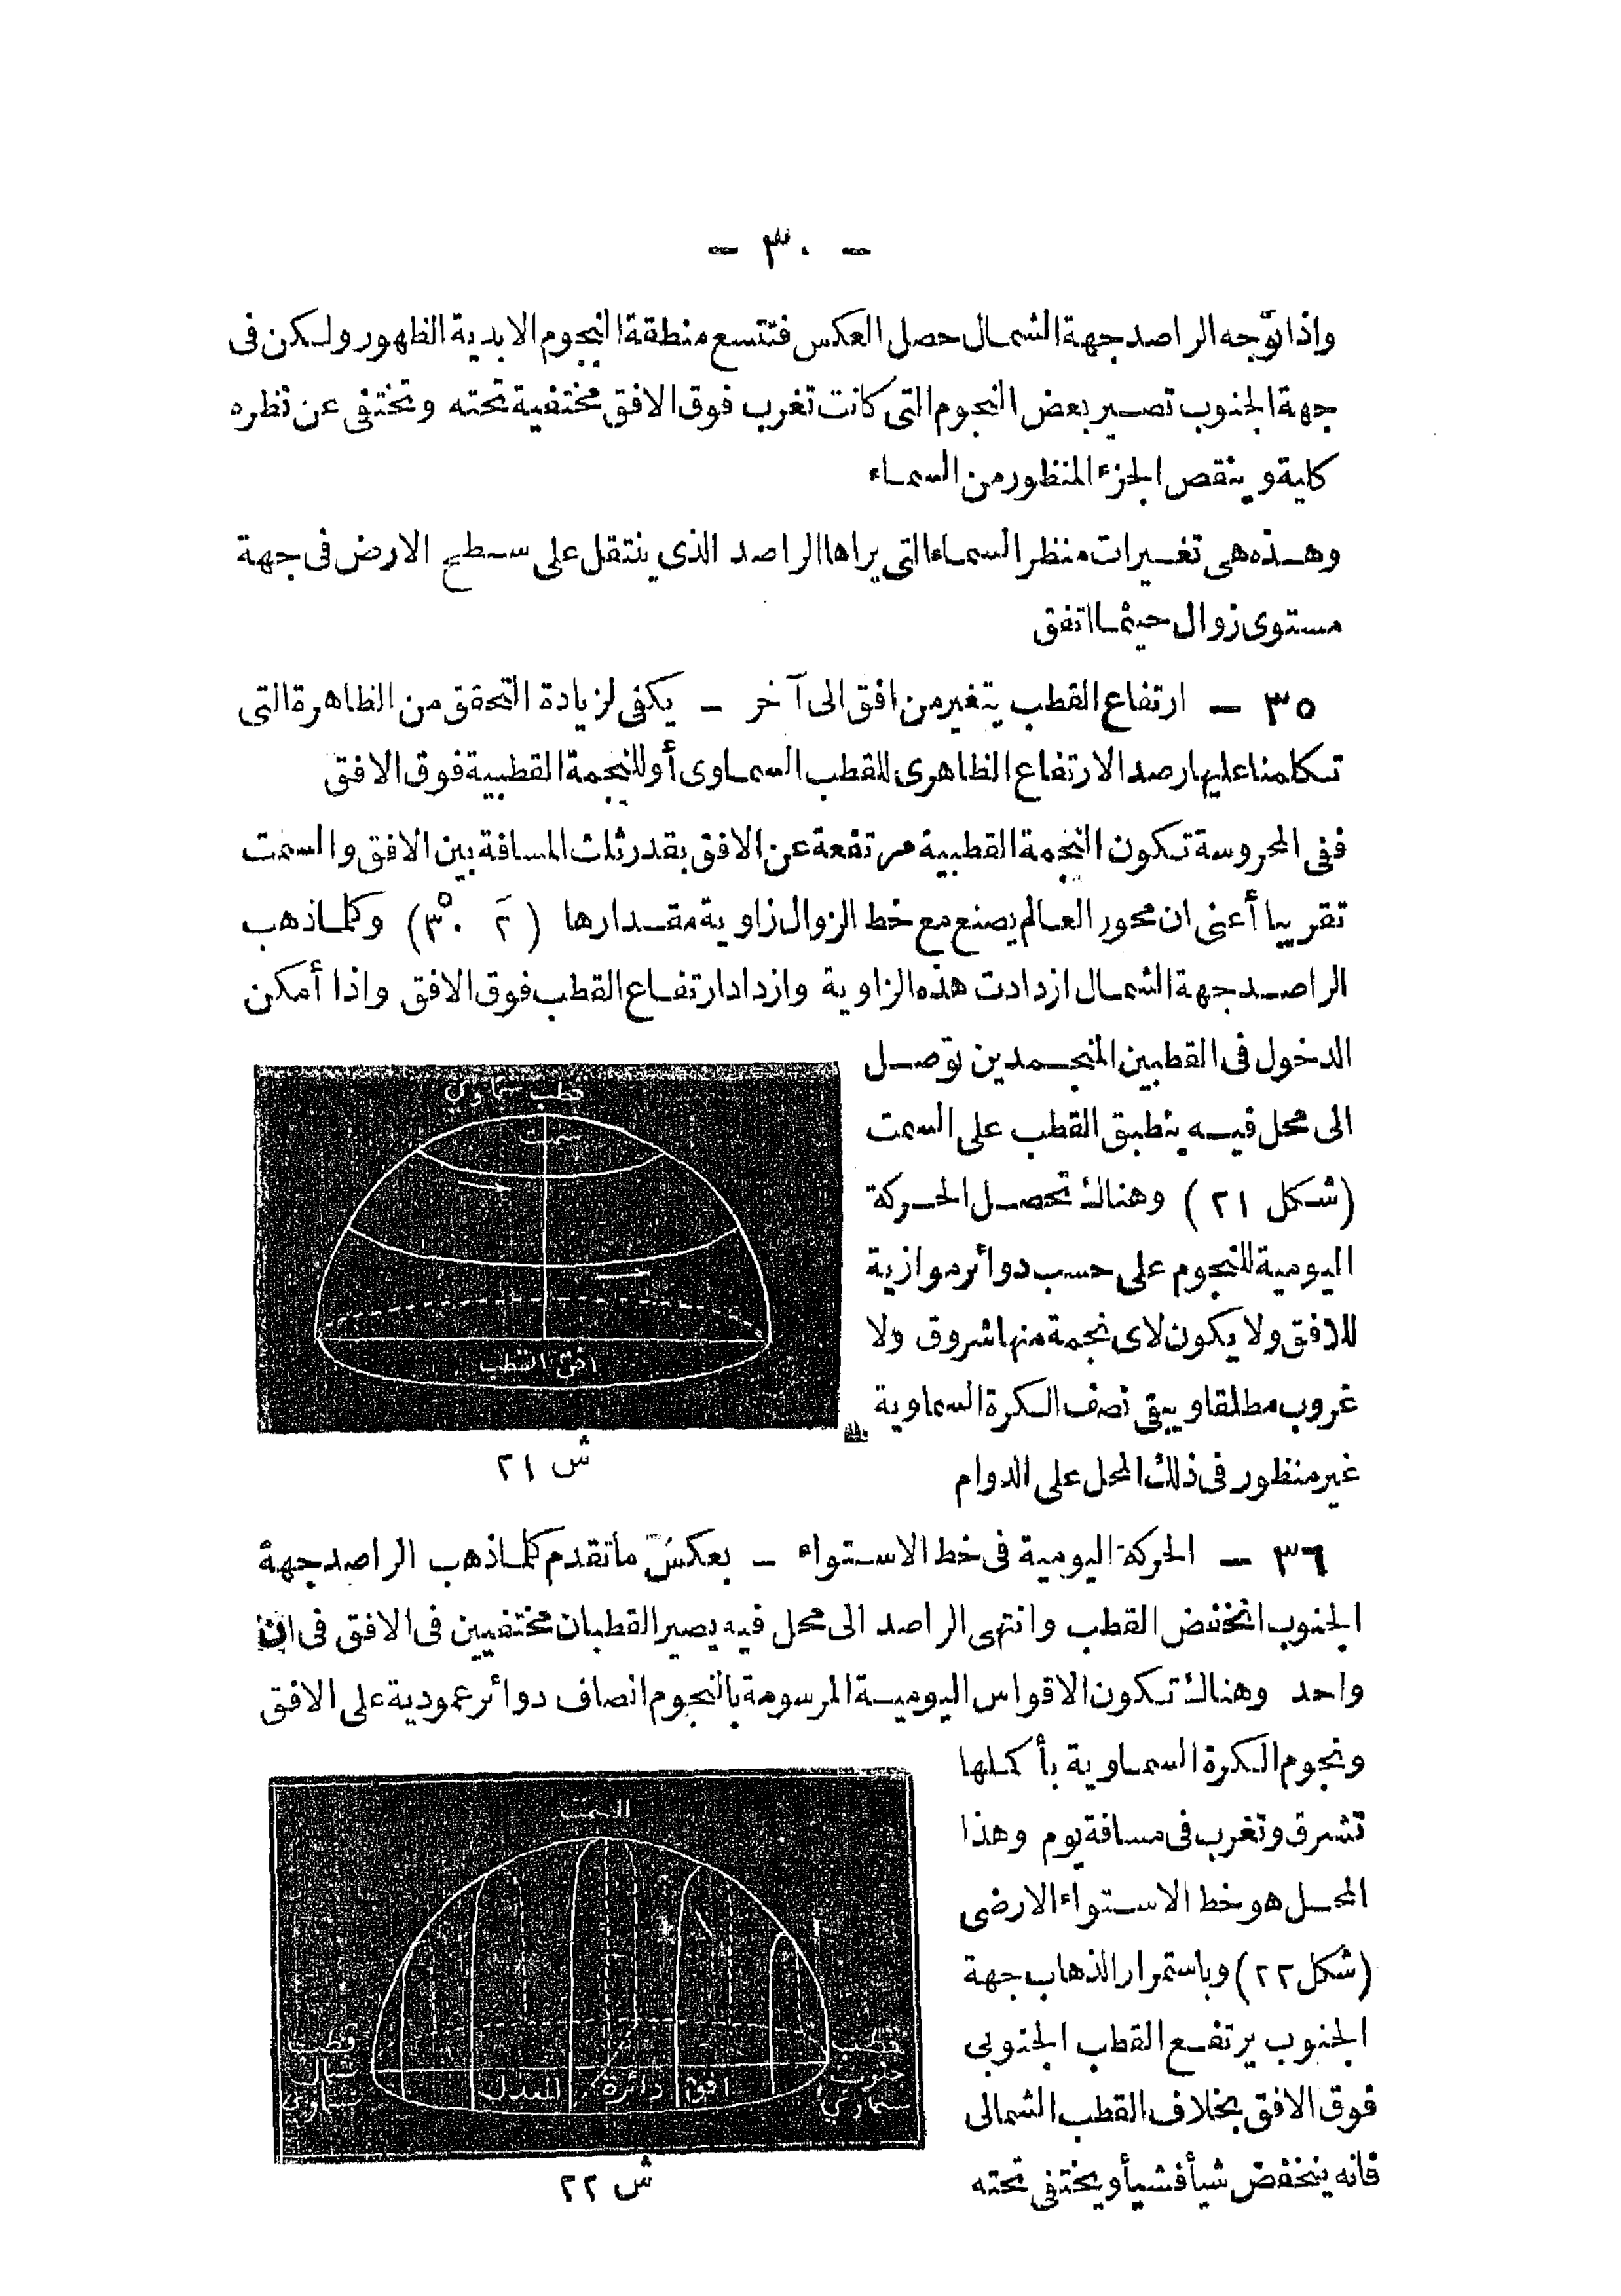 — ٣٠ —
واذا توّجه الراصد جهة الشمال حصل العكس فتتسع منطقة النجوم الابدية الظهور ولكن فى
جهة الجنوب تصير بعض النجوم التى كانت تغرب فوق الافق مختفية تحته وتختفى عن نظره
كلية وينقص الجزء المنظور من السماء
وهذه هى تغيرات منظر السماء التى يراها الراصد الذى ينتقل على سطح الارض فى جهة
مستوى زوال حيثما اتفق
٣٥ — ارتفاع القطب يتغير من افق الى آخر — يكفى لزيادة التحقق من الظاهرة التى
تكلمنا عليها رصد الارتفاع الظاهرى للقطب السماوى أو للنجمة القطبية فوق الافق
ففى المحروسة تكون النجمة القطبية مرتفعة عن الافق بقدر ثلث المسافة بين الافق والسمت
تقريبا أعنى ان محور العالم يصنع مع خط الزوال زاوية مقدارها (٢َ ٣٠°) وكلما ذهب
الراصد جهة الشمال ازدادت هذه الزاوية وازداد ارتفاع القطب فوق الافق واذا أمكن
الدخول فى القطبين المنجمدين توّصل
الى محل فيه ينطبق القطب على السمت
(شكل ٢١) وهنالك تحصل الحركة
اليومية للنجوم على حسب دوائر موازية
للافق ولا يكون لاى نجمة منها شروق ولا
غروب مطلقا ويبقى نصف الكرة السماوية
غير منظور فى ذلك المحل على الدوام
قطب سماوي
سمت
افق القطب
ش ٢١
٣٦ — الحركة اليومية فى خط الاستواء — بعكس ما تقدم كلما ذهب الراصد جهة
الجنوب انخفض القطب وانتهى الراصد الى محل فيه يصير القطبان مختفيين فى الافق فى ان
واحد وهنالك تكون الاقواس اليومية المرسومة بالنجوم انصاف دوائر عمودية على الافق
ونجوم الكرة السماوية بأكملها
تشرق وتغرب فى مسافة يوم وهذا
المحل هو خط الاستواء الارضى
(شكل ٢٢) وباستمرار الذهاب جهة
الجنوب يرتفع القطب الجنوبى
فوق الافق بخلاف القطب الشمالى
فانه ينخفض شيأ فشيأ ويختفى تحته
السمت
قطب
شمال
سماوي
افق دائرة المعدل
قطب
جنوب
سماوي
ش ٢٢